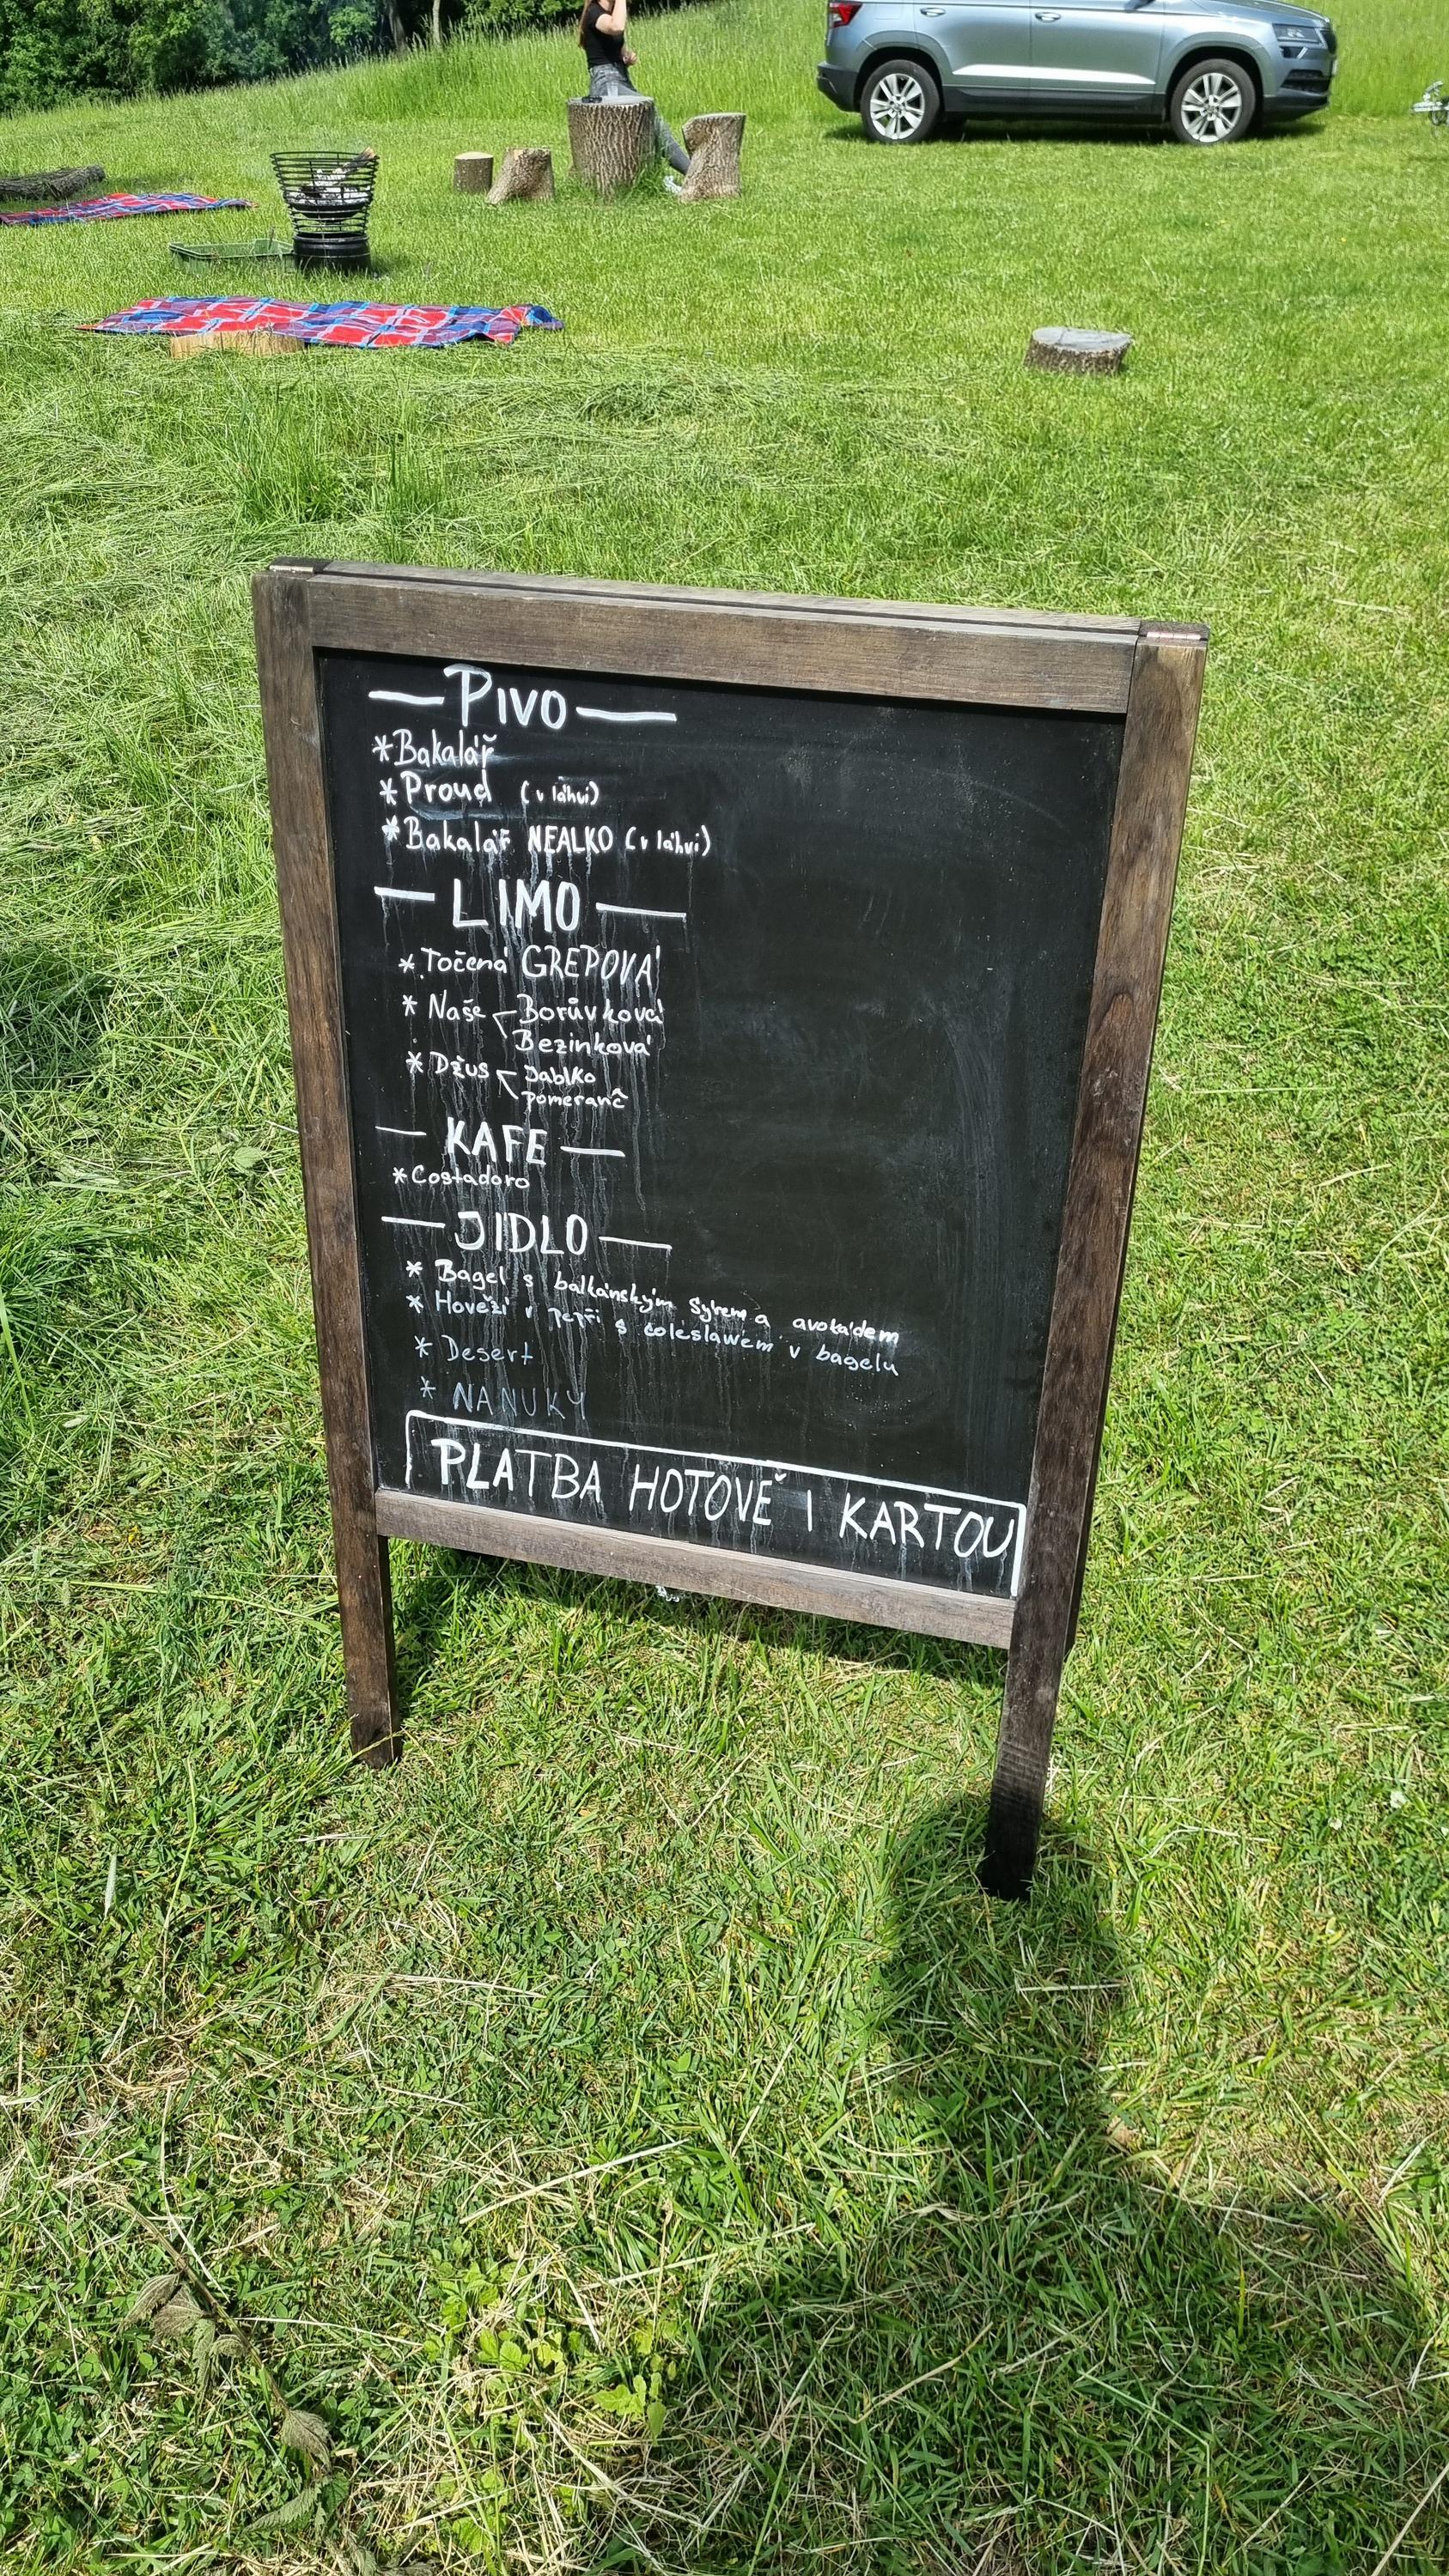 — PIVO —
* Bakalář
* Proud (v láhvi)
* Bakalář NEALKO (v láhvi)
— LIMO —
* Točená GREPOVÁ
* Naše Borůvková
Bezinková
* Džus Jablko
pomeranč
— KAFE —
* Costadoro
— JÍDLO —
* Bagel s balkánským sýrem a avokádem
* Hovězí v pepři s coleslawem v bagelu
* Desert
* NANUKY
PLATBA HOTOVĚ I KARTOU